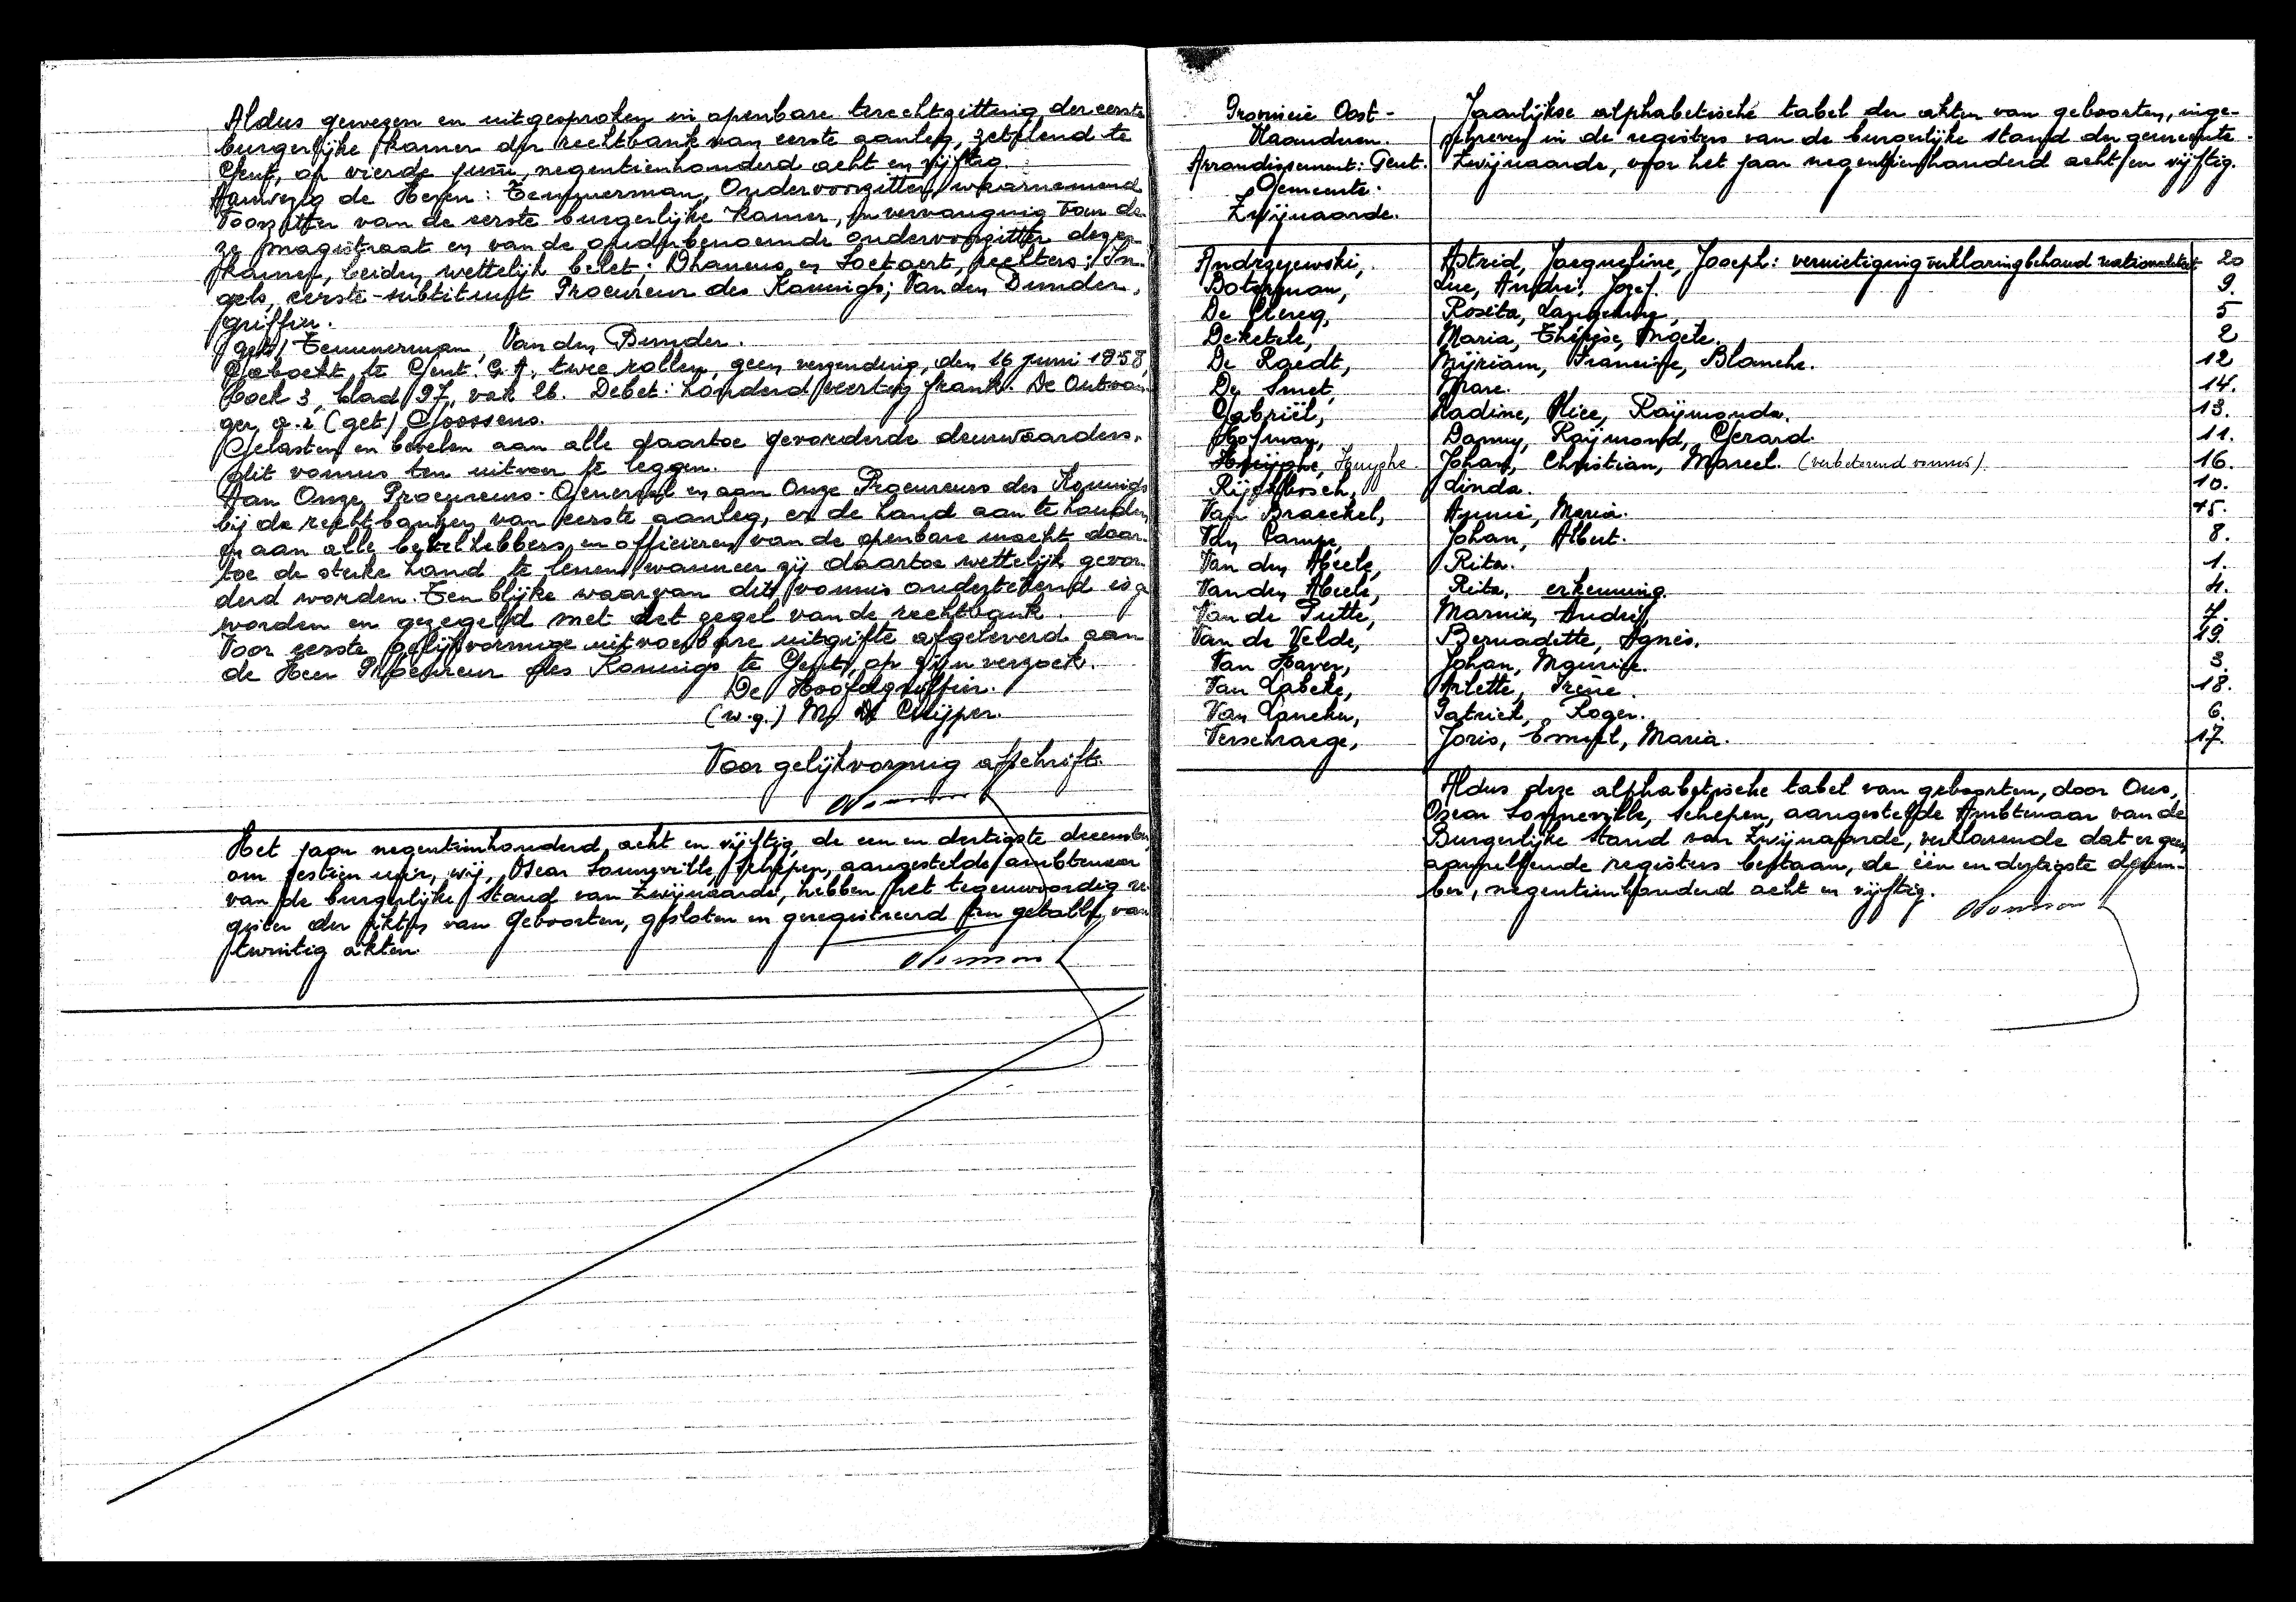 Aldus gewezen en uitgesproken in openbare terechtzitting der eerste
burgerlijke kamer der rechtbank van eerste aanleg, zetelend te
Gent, op vierde juni, negentienhonderd acht en vijftig.
Aanwezig de Heren: Temmerman, Ondervoorzitter, waarnemend
Voorzitter van de eerste burgerlijke Kamer, in vervanging van de-
ze magistraat en van de oudstbenoemde ondervoorzitter dezer
Kamer, beiden wettelijk belet; Dhaenens en Soetaert, rechters; In-
gels, eerste-substituut Procureur des Konings; Van den Bunder,
griffier.
(get) Temmerman, Van den Bunder.
Geboekt te Gent G.A. twee rollen, geen verzending, den 16 juni 1958,
boek 3, blad 97, vak 26. Debet: honderd veertig frank. De Ontvan-
ger, a.i (get) Goossens.
Gelasten en bevelen aan alle daartoe gevorderde deurwaarders,
dit vonnis ten uitvoer te leggen.
Aan Onze Procureurs-Generaal en aan Onze Procureurs des Konings
bij de rechtbanken van eerste aanleg, er de hand aan te houden
en aan alle bevelhebbers en officieren van de openbare macht daar-
toe de sterke hand te lenen, wanneer zij daartoe wettelijk gevor-
derd worden. Ten blijke waarvan dit vonnis ondertekend is ge
worden en gezegeld met het zegel van de rechtbank.
Voor eerste gelijkvormige uitvoerbare uitgifte afgeleverd aan
de Heer Procureur des Konings te Gent, op zijn verzoek.
De Hoofdgriffier.
(w.g.) M. De Cuijper.
Voor gelijkvormig afschrift.
Het jaar negentienhonderd acht en vijftig, de een en dertigste december,
om zestien uur, wij, Oscar Sonneville, Schepen, aangestelde ambtenaar
van de burgerlijke stand van Zwijnaarde, hebben het tegenwoordig re-
gister der akten van Geboorten, gesloten en geregistreerd ten getalle van
twintig akten.
Provincie Oost-
Vlaanderen.
Arrondissement: Gent.
Gemeente:
Zwijnaarde.
Jaarlijkse alphabetische tabel der akten van geboorten, inge-
schreven in de registers van de burgerlijke stand der gemeente
Zwijnaarde, voor het jaar negentienhonderd acht en vijftig.
Andrzejewski, Astrid, Jacqueline, Joseph: vernietiging verklaring behoud nationaliteit 20
Boterman, Luc, André, Jozef. 9.
De Clercq, Rosita, 5
Deketele, Maria, Thérèse, 2
De Raedt, Mijriam, Francine, Blanche. 12
De Smet, Marc. 14.
Gabriël, Nadine, Alice, Raÿmonda. 13.
Hofman, Danny, Raÿmond, Gerard. 11.
Huÿghe, Huyghe Johan, Christian, Marcel. (verbeterend vonnis). 16.
Rijckbosch, Linda. 10.
Van Braeckel, Annie, Maria. 15.
Van Campe, Johan, Albert. 8.
Van den Abeele, Rita. 1.
Van den Abeele, Rita, erkenning. 4.
Van de Putte, Marnix, André, 7.
Van de Velde, Bernadette, Agnès. 19.
Van Haver, Johan, Maurice. 3.
Van Labeke, Arlette, Irène. 18.
Van Lancker, Patrick, Roger. 6.
Verschraege, Joris, Emiel, Maria. 17.
Aldus deze alphabetische tabel van geboorten, door Ons,
Oscar Sonneville, Schepen, aangestelde Ambtenaar van de
Burgerlijke stand van Zwijnaarde, verklarende dat er geen
aanvullende registers bestaan, de één en dertigste decem-
ber, negentienhonderd acht en vijftig.